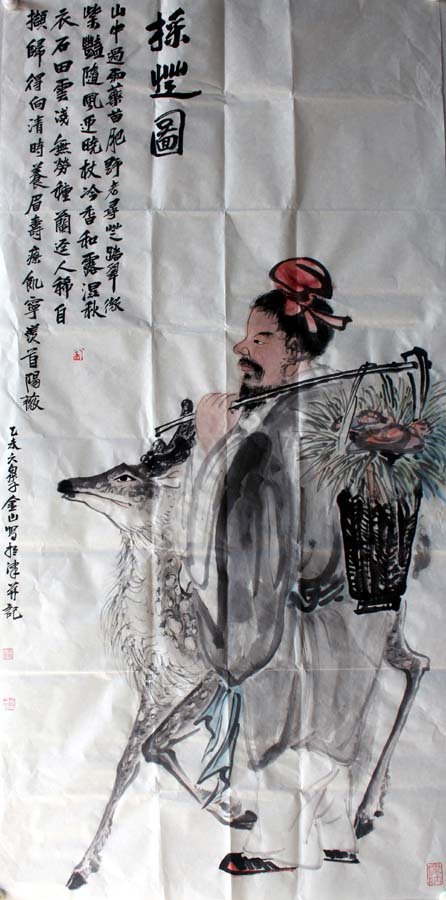 採芝圖
山中過雨藥苗肥野老尋芝踏翠微
紫豔隨風迎曉杖冷香和露濕秋
衣石田雲淺無勞種蘭逕人稀自
擷歸得向清時養眉壽療飢寧羨首陽薇
金山寫於津并記